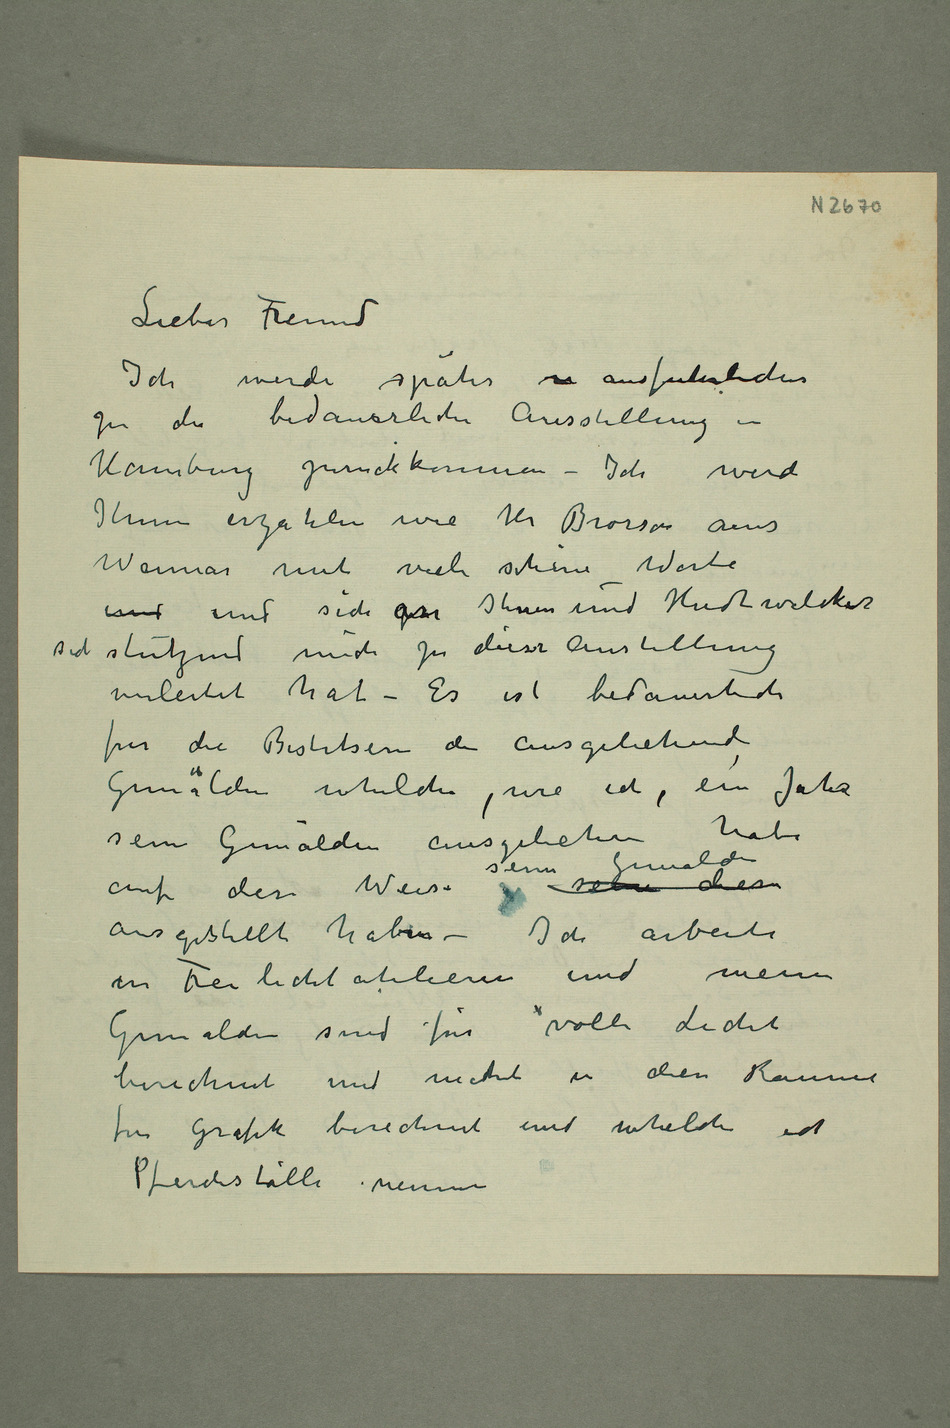 N 2670
Lieber Freund
Ich werde später ausfürhrlicher
zu die bedauerliche Ausstellung in
Hamburg zurückkommen – Ich werd
Ihnen erzählen wie Hr Brorson aus
Weimar mit viele schöne Worte
und und sich zu Ihnen und Hudtwalcker
sich stützend mich zu dieser Austellung
verleitet hat – Es ist bedauerlich
für die Besitsern die ausgeliehene
Gemälden whelche, wie ich, ein Jahr
sein Gemälden ausgeliehen habe
seine Gemälde
auf dese Weise seine diese
ausgestellt haben – Ich arbeite
in Freilichtatelieren und meine
Gemälden sind für volle Licht
berechnet und nicht in den Raume
für Grafik berechnet und whelche ich
Pferdeställe nenne